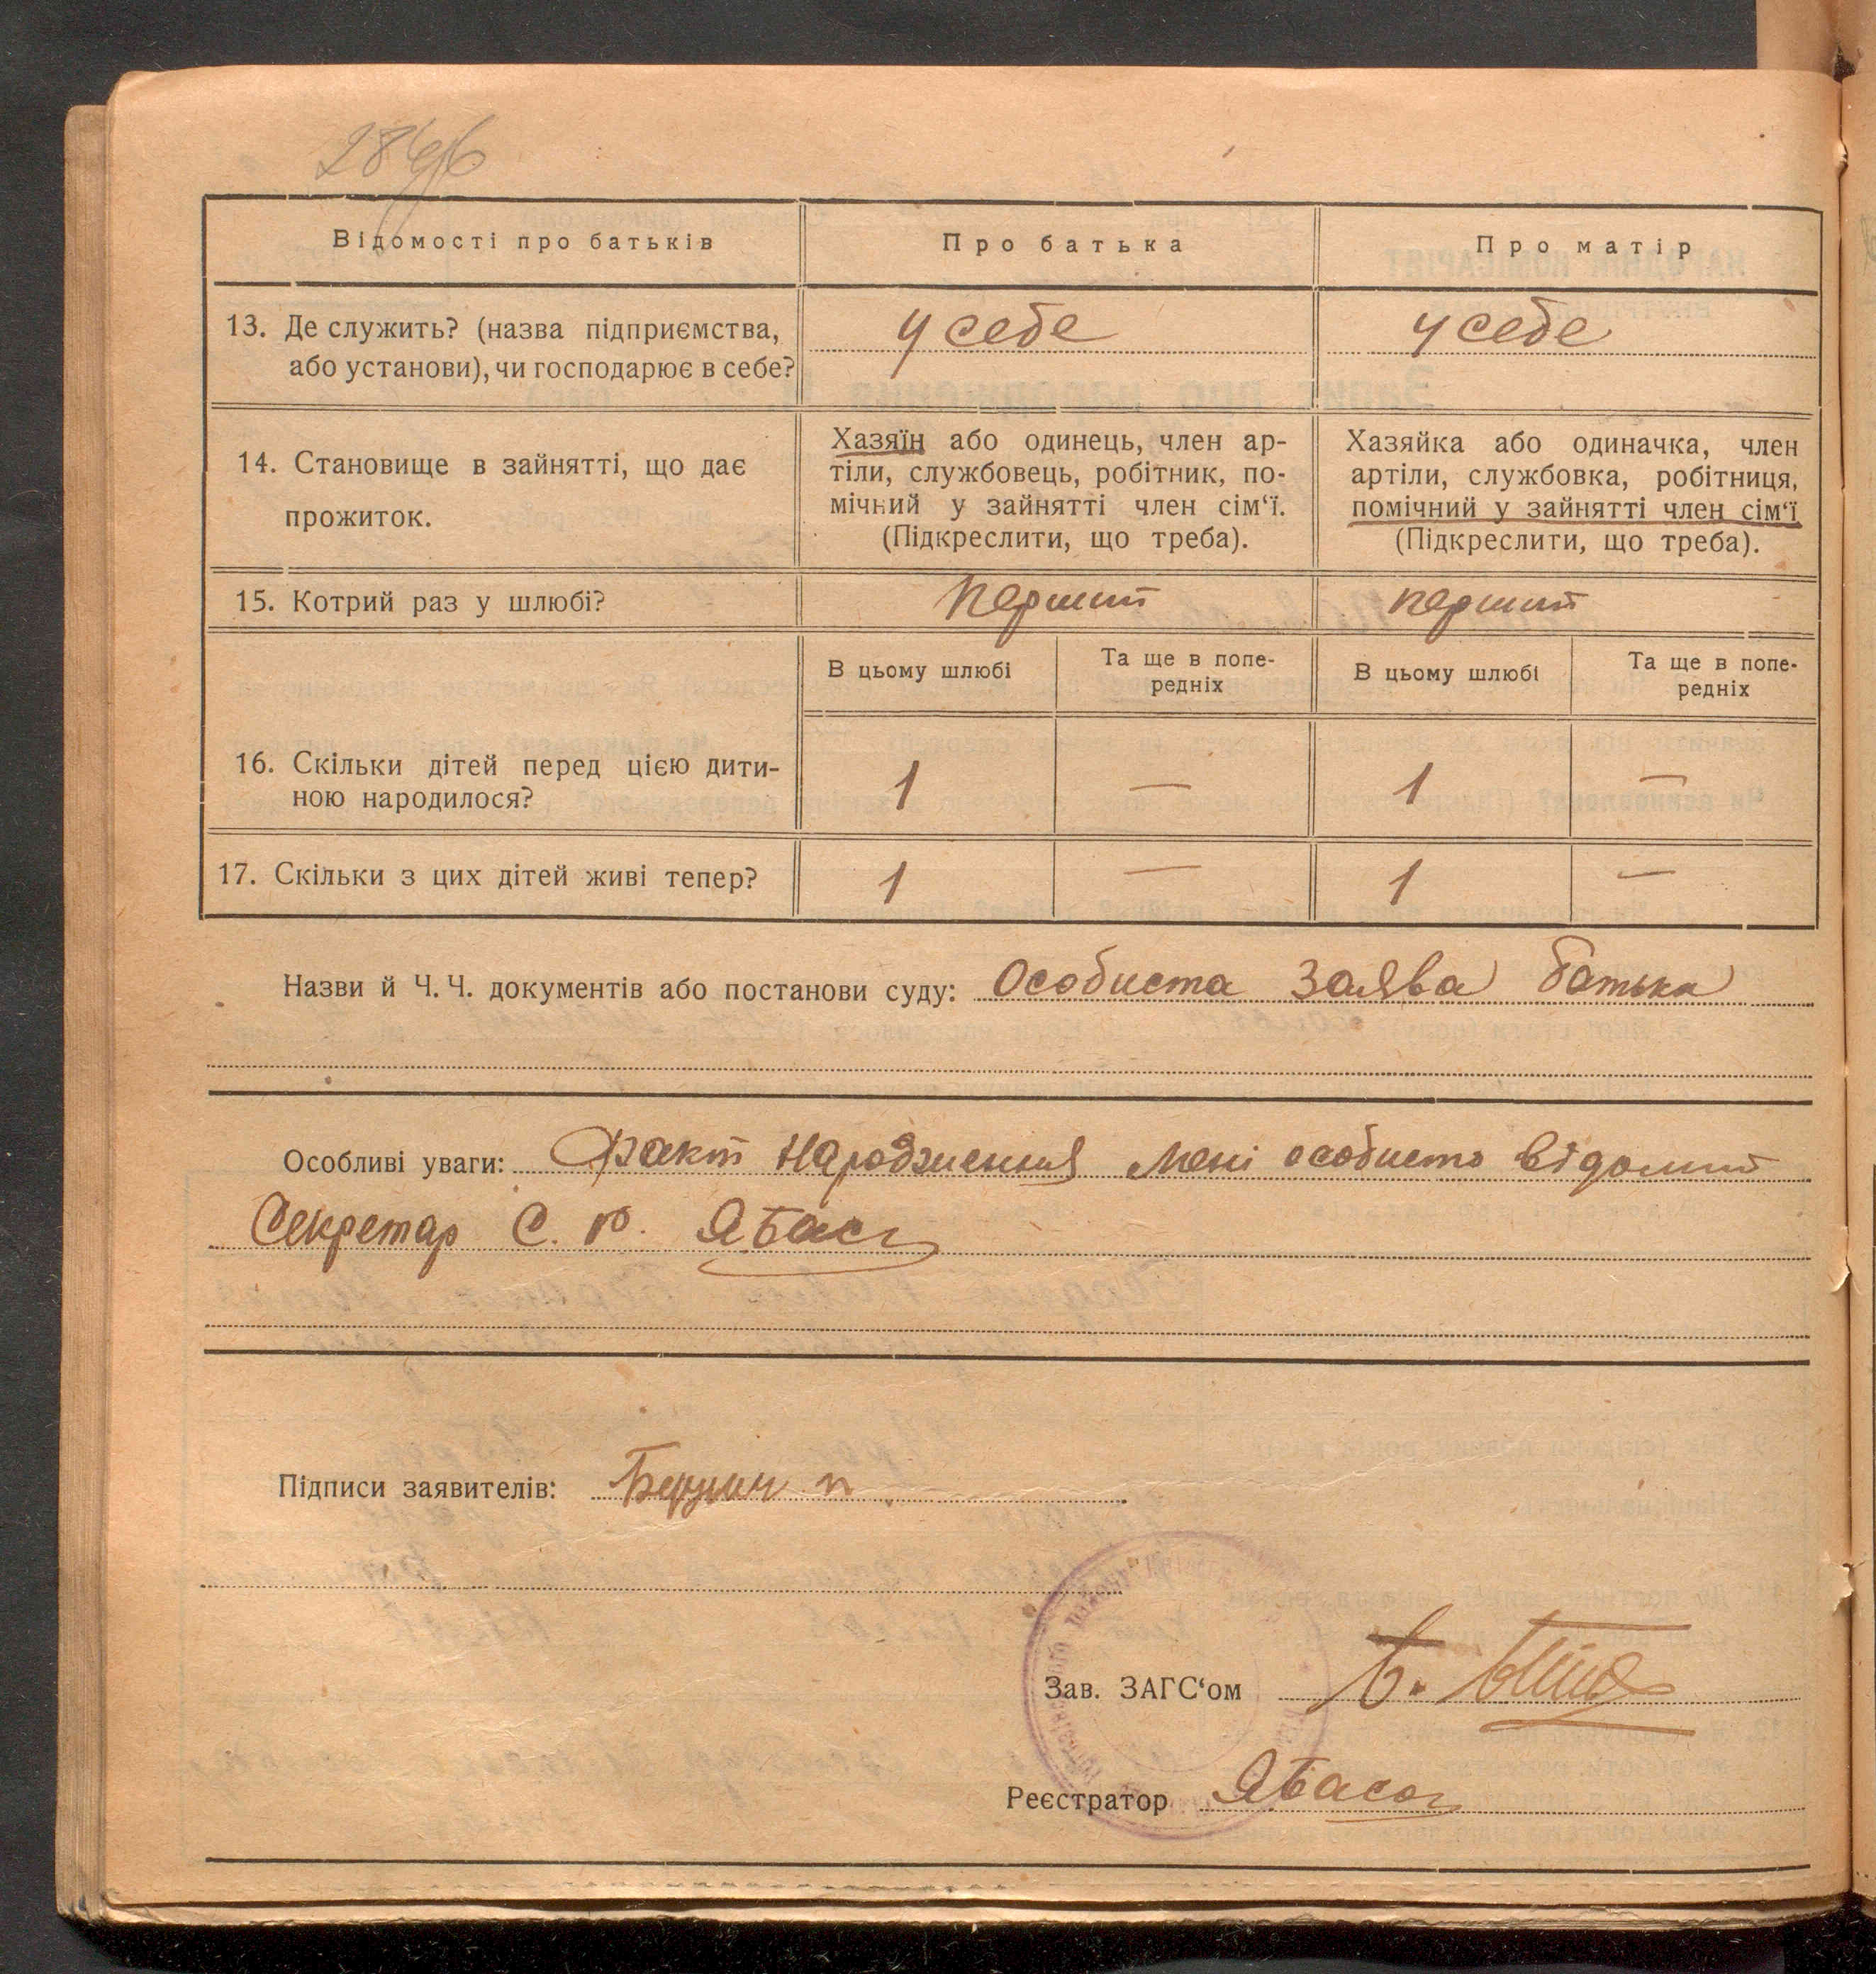 Відомості про батьків
Про батька
Про матір
13. Де служить? (назва підприємства,
або установи), чи господарює в себе?
у себе
у себе
14. Становище в зайнятті, що дає
прожиток.
Хазяїн або одинець, член ар-
тіли, службовець, робітник, по-
мічний у зайнятті член сім‘ї.
(Підкреслити, що треба).
Хазяйка або одиначка, член
артіли, службовка, робітниця,
помічний у зайнятті член сім‘ї
(Підкреслити, що треба).
15. Котрий раз у шлюбі?
перший
перший
В цьому шлюбі
Та ще в попе-
редніх
В цьому шлюбі
Та ще в попе-
редніх
16. Скільки дітей перед цією дити-
ною народилося?
1 — 1 —
17. Скільки з цих дітей живі тепер?
1 — 1 —
Назви й Ч. Ч. документів або постанови суду: Особиста заява батька
Особливі уваги: Факт народження мені особисто відомий
Секретар С. Р.
Підписи заявителів:
Зав. ЗАГС‘ом
Реєстратор